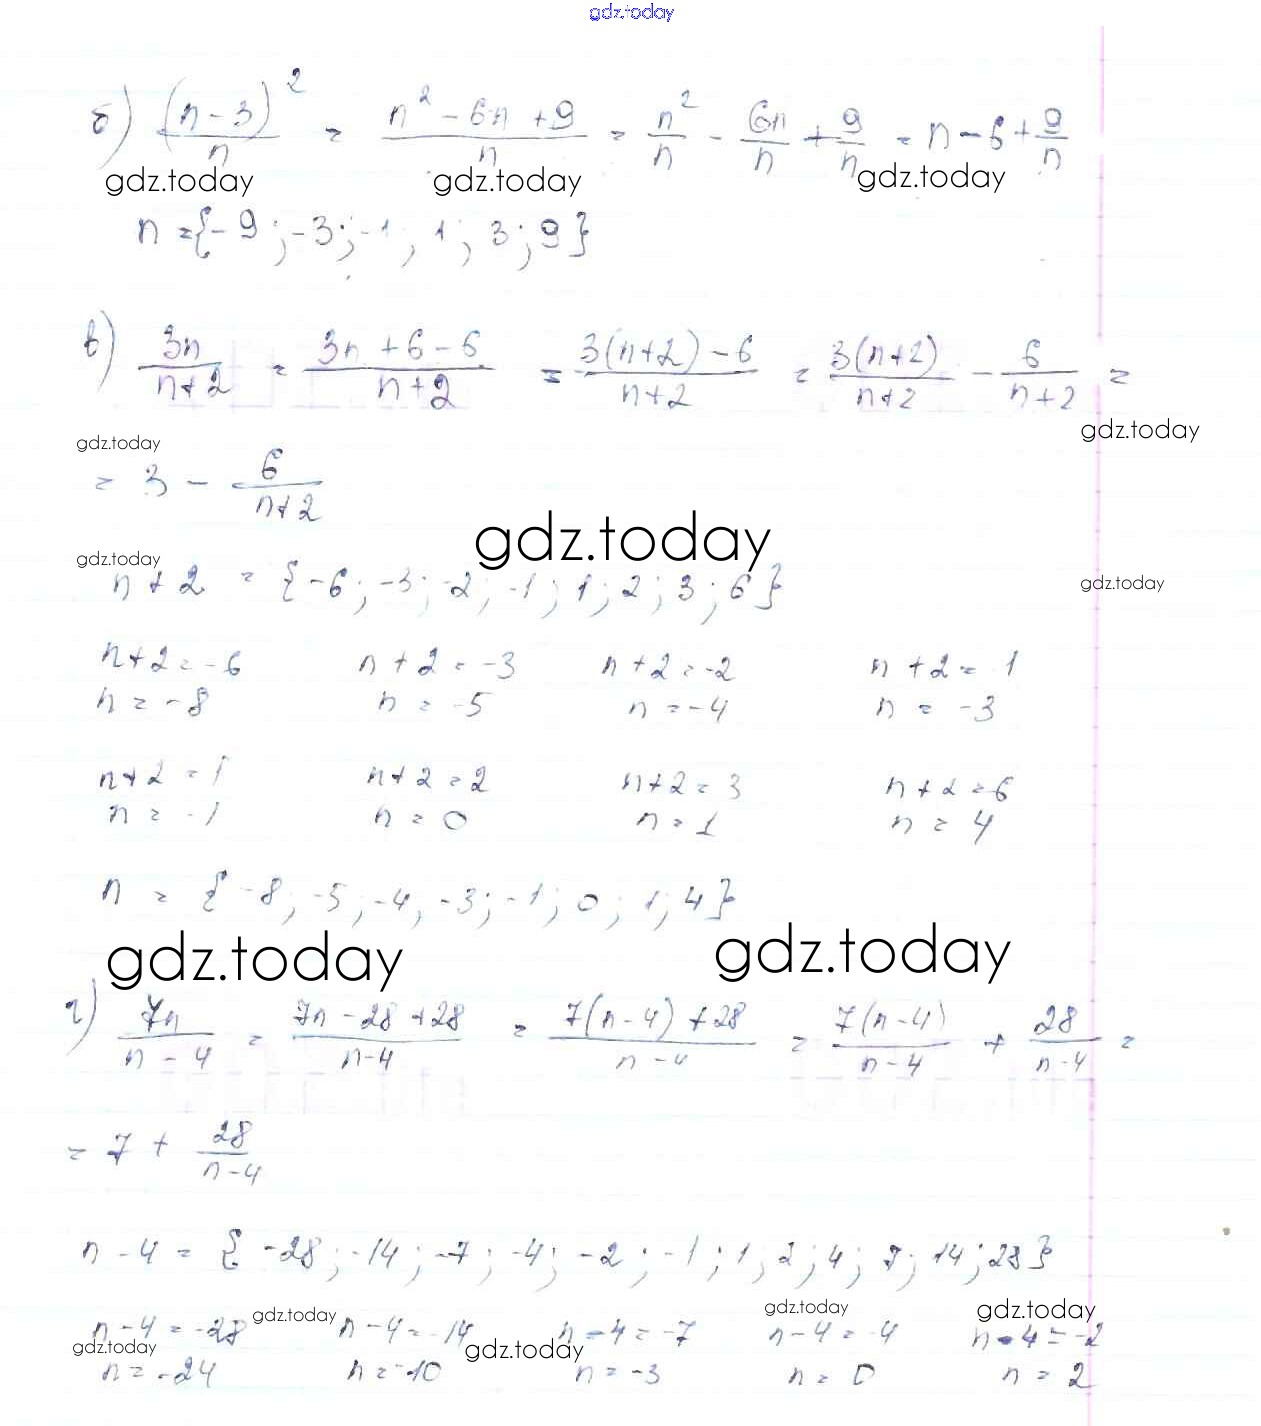 gdz.today
б) (n-3)²/n = n²-6n+9/n = n²/n - 6n/n + 9/n = n-6+9/n
gdz.today gdz.today gdz.today
n = {-9; -3; -1; 1; 3; 9}
в) 3n/n+2 = 3n+6-6/n+2 = 3(n+2)-6/n+2 = 3(n+2)/n+2 - 6/n+2 =
gdz.today gdz.today
= 3 - 6/n+2
gdz.today
gdz.today gdz.today
n+2 = {-6; -3; -2; -1; 1; 2; 3; 6}
n+2=-6 n+2=-3 n+2=-2 n+2=-1
n=-8 n=-5 n=-4 n=-3
n+2=1 n+2=2 n+2=3 n+2=6
n=-1 n=0 n=1 n=4
n = {-8; -5; -4, -3; -1; 0; 1; 4}
gdz.today gdz.today
г) 7n/n-4 = 7n-28+28/n-4 = 7(n-4)+28/n-4 = 7(n-4)/n-4 + 28/n-4 =
= 7 + 28/n-4
n-4 = {-28; -14; -7; -4; -2; -1; 1; 2; 4; 7; 14; 28}
gdz.today gdz.today gdz.today
n-4=-28 n-4=-14 n-4=-7 n-4=-4 n-4=-2
gdz.today gdz.today
n=-24 n=-10 n=-3 n=0 n=2